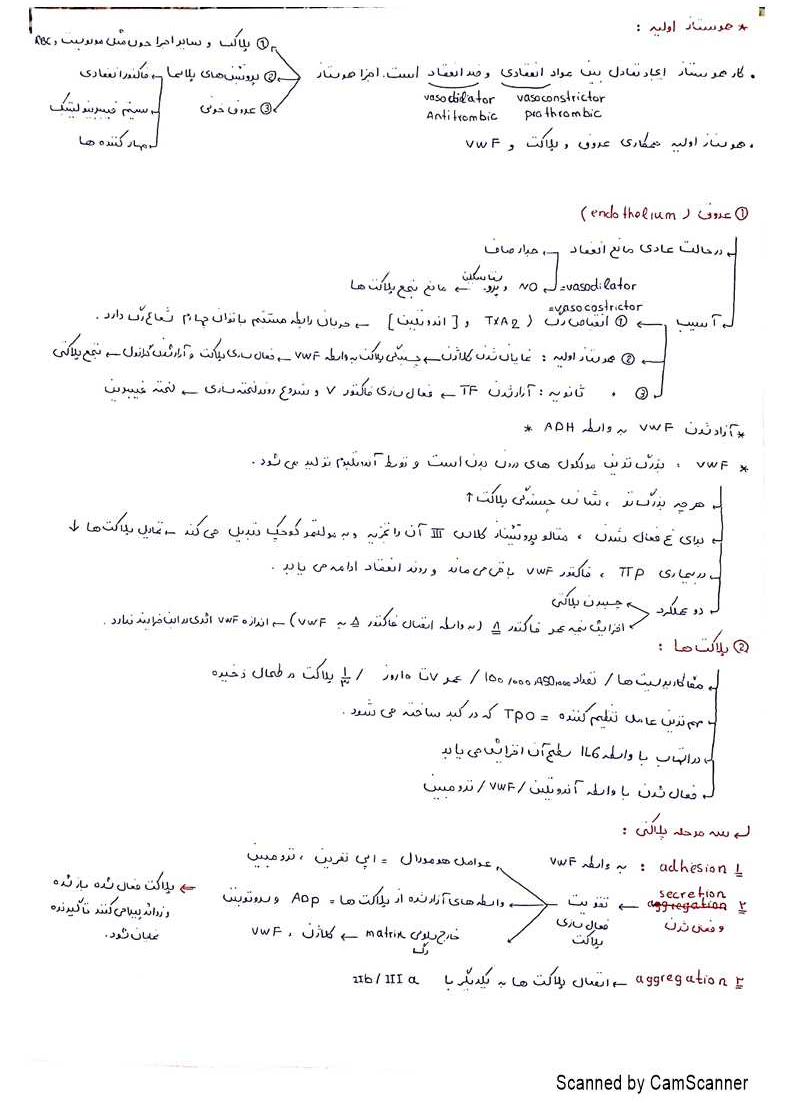 * هموستاز اولیه :
. کار هموستاز ایجاد تعادل بین مواد انعقادی و ضد انعقاد است. اجزا هموستاز
vasodilator vasoconstrictor
Antitrombic prothrombic
① پلاکت و سایر اجزا خون مثل مونوسیت و RBC
② پروتئین‌های پلاسما
فاکتور انعقادی
سیستم فیبرینولیتیک
مهارکننده ها
③ عروق خونی
. هموستاز اولیه همکاری عروق و پلاکت و vWF
① عروق ( endothelium )
درحالت عادی مانع انعقاد
جدار صاف
NO و پروستاسیکلین ← مانع تجمع پلاکت ها
=vasodilator
=vasocostrictor
آسیب ← ① انقباض رگ ( TXA2 و [اندوتلین] ← جریان رابطه مستقیم با توان چهارم شعاع رگ دارد.
② هموستاز اولیه : نمایان شدن کلاژن ← چسبندگی پلاکت به واسطه vWF ← فعال سازی پلاکت و آزاد شدن گرانول ← تجمع پلاکتی
③ . ثانویه : آزاد شدن TF ← فعال سازی فاکتور V و شروع روند لخته سازی ← لخته فیبرین
* آزاد شدن vWF به واسطه ADH *
* vWF : بزرگ ترین مولکول های درون بدن است و توسط آندوتلیوم تولید می شود.
هرچه بزرگ تر ، شانس چسبندگی پلاکت ↑
برای غ فعال شدن ، متالو پروتئیناز کلاس III آن را تجزیه و به مولتیمر کوچک تبدیل می کند ← تمایل پلاکت ها ↓
دربیماری TTP ، فاکتور vWF باقی می ماند و روند انعقاد ادامه می یابد.
دو عملکرد
چسبیدن پلاکتی
افزایش نیمه عمر فاکتور ۸ (به واسطه اتصال فاکتور ۸ به vWF) ← اندازه vWF اثری در این فرایند ندارد.
② پلاکت ها :
مگاکاریوسیت ها / تعداد 100,000 تا 450,000 / عمر ۷ تا ۱۰ روز / ۱/۳ پلاکت در طحال ذخیره
مهم ترین عامل تنظیم کننده = TPO که در کبد ساخته می شود.
درالتهاب با واسطه IL6 سطح آن افزایش می یابد
فعال شدن با واسطه آندوتلین / vWF / ترومبین
سه مرحله پلاکتی :
۱ adhesion : به واسطه vWF
۲ aggregation secretion و پهن شدن ← تقویت فعال سازی پلاکت
عوامل هومورال = اپی نفرین ، ترومبین
واسطه های آزاد شده از پلاکت ها = ADP و سروتونین
matrix خارج سلولی رگ ← کلاژن ، vWF
← پلاکت فعال شده باز شده و زوائد پیدا می کنند تا گیرنده نمایان شود.
۳ aggregation ← اتصال پلاکت ها به یکدیگر با IIb / III a
Scanned by CamScanner